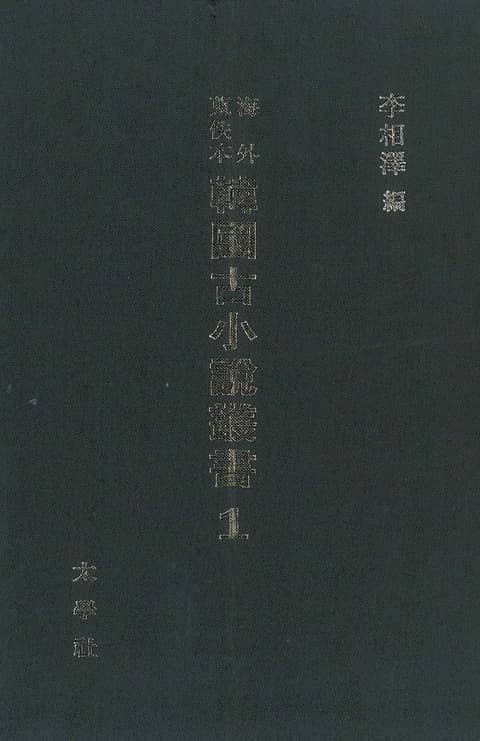 李相澤 編
海外
蒐佚本
韓國古小說叢書 1
太學社